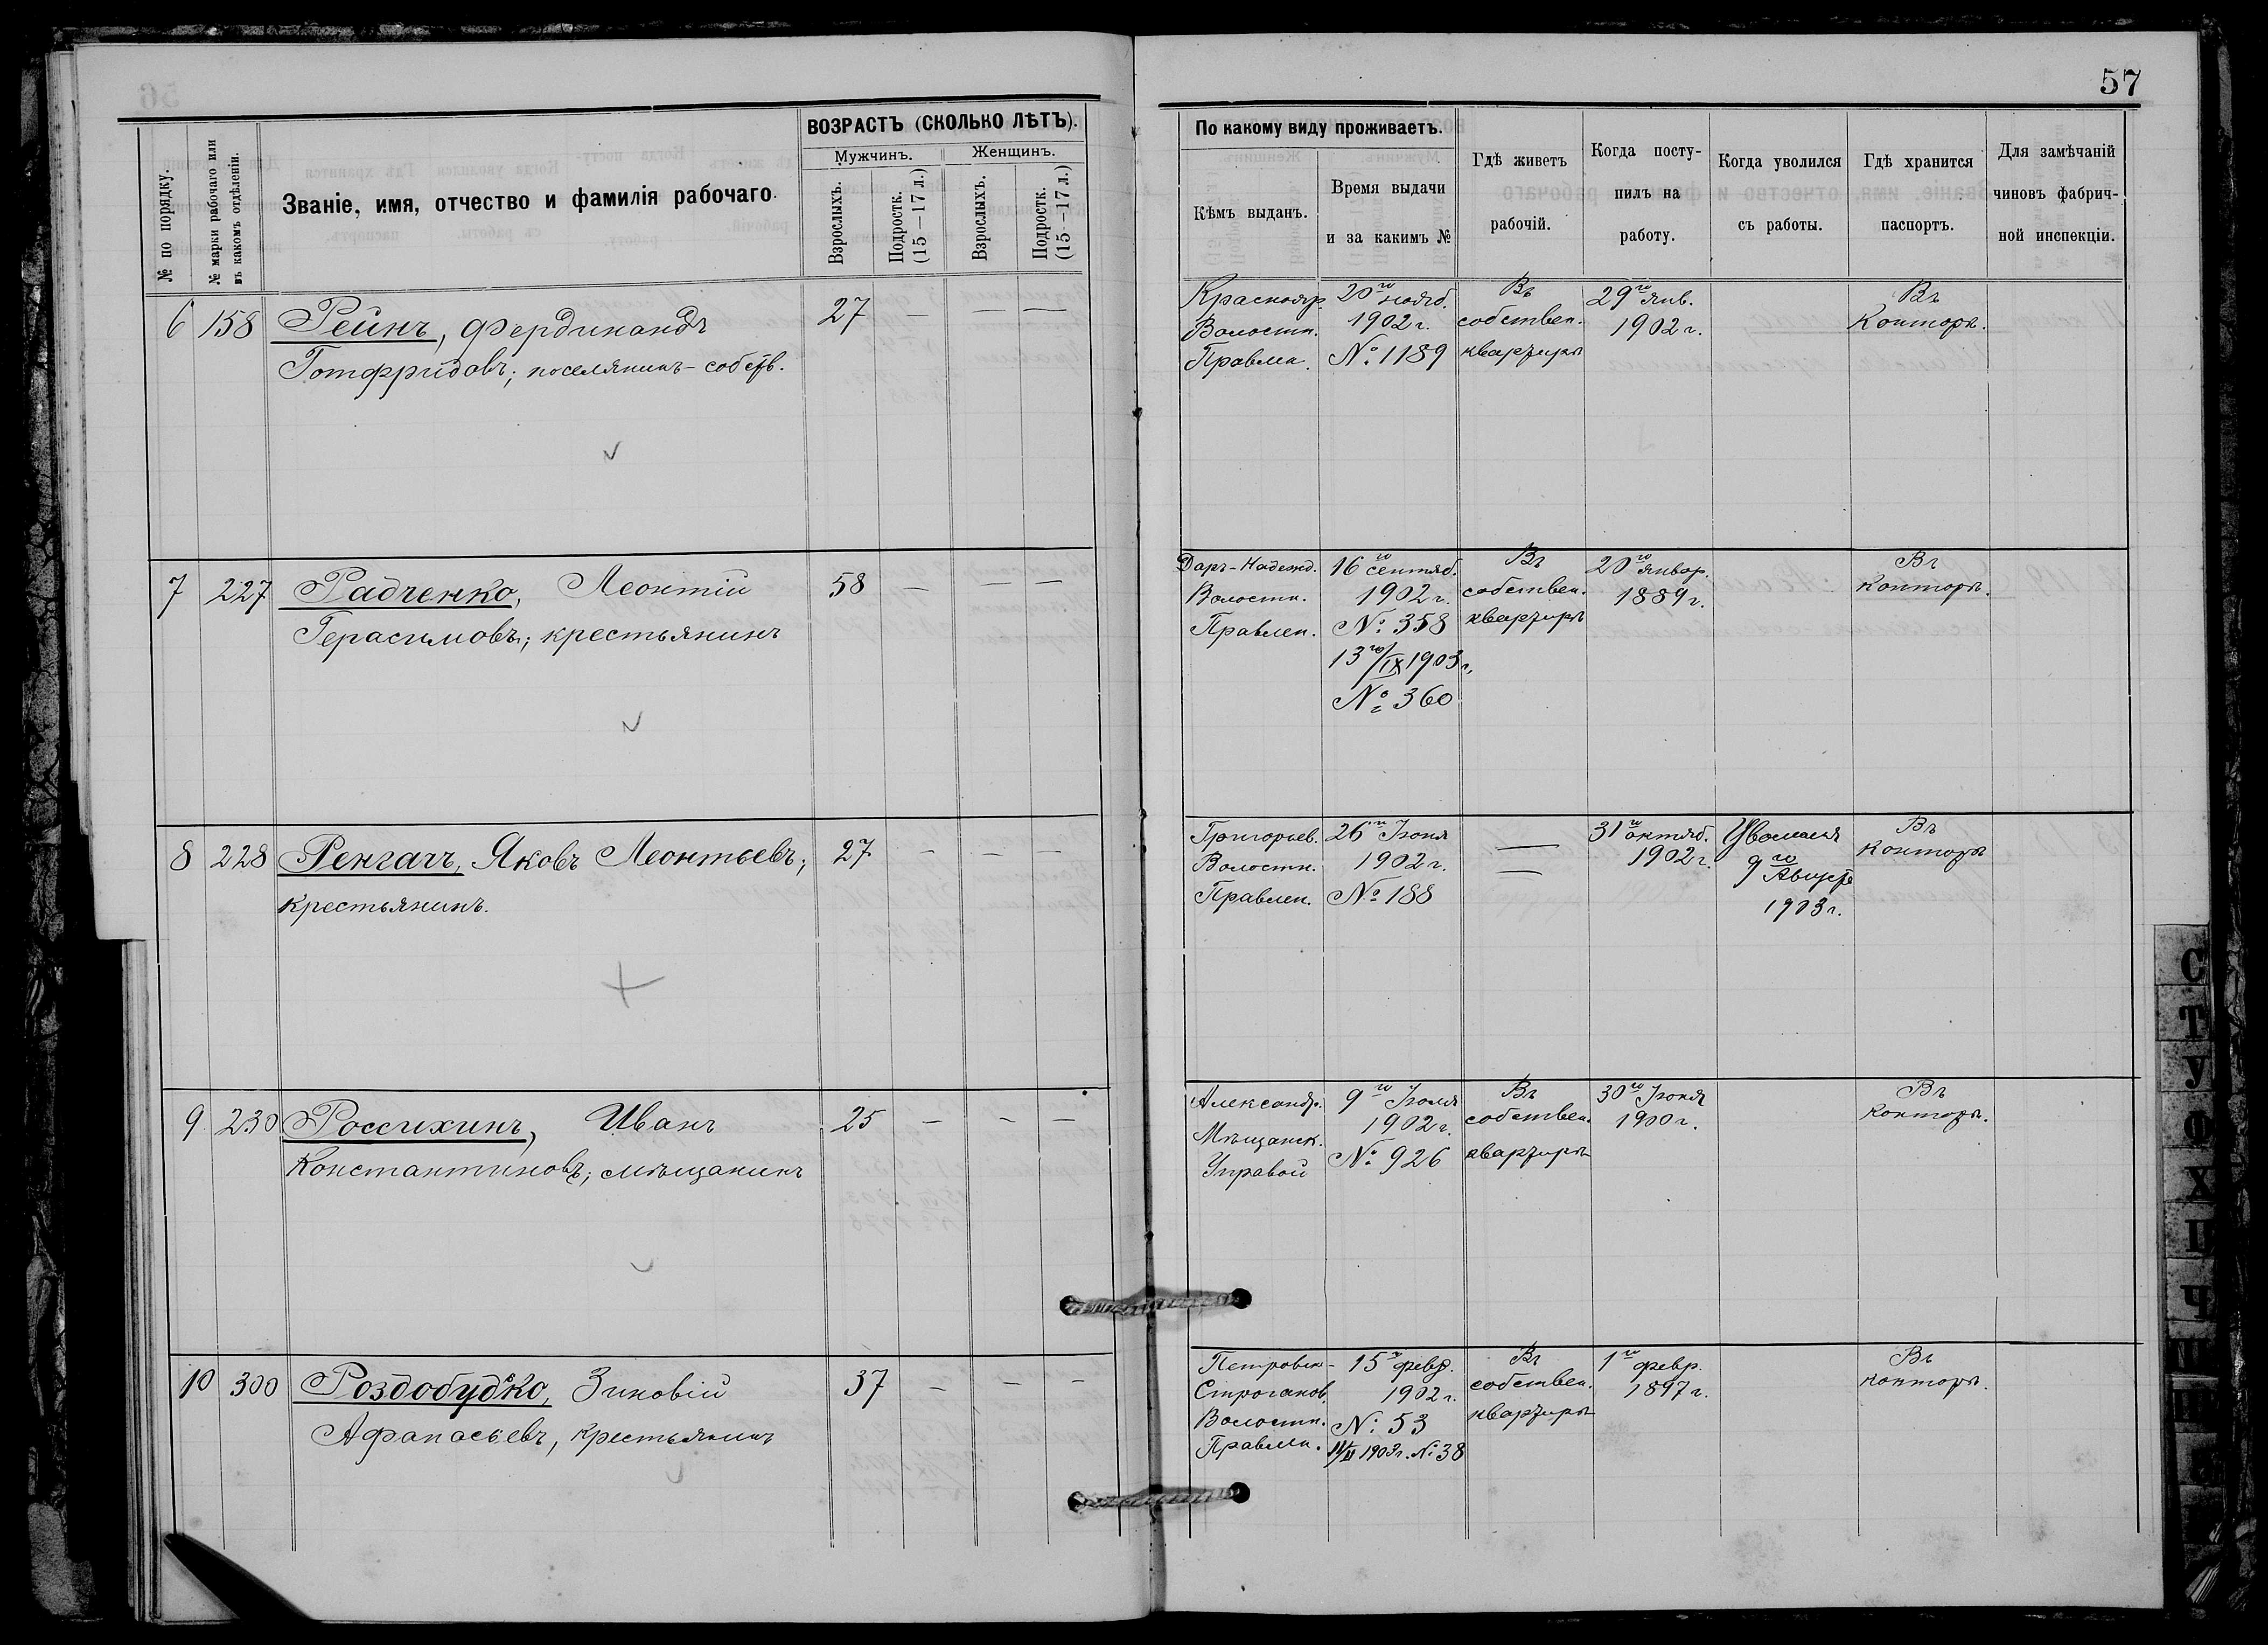 57
ВОЗРАСТЪ (СКОЛЬКО ЛѢТЪ).
Мужчинъ. Женщинъ.
№ по порядку.
№ марки рабочаго или
въ какомъ отдѣленіи.
Званіе, имя, отчество и фамилія рабочаго.
Взрослыхъ.
Подростк.
(15—17 л.)
Взрослыхъ.
Подростк.
(15—17 л.)
По какому виду проживаетъ.
Кѣмъ выданъ.
Время выдачи
и за какимъ №
Гдѣ живетъ
рабочій.
Когда посту-
пилъ на
работу.
Когда уволился
съ работы.
Гдѣ хранится
паспортъ.
Для замѣчаній
чиновъ фабрич-
ной инспекціи.
6 158 Рейнъ, Фердинандъ 27 — — —
Готфридовъ; поселянинъ-собств.
Краснояр.
Волостн.
Правлен.
20го нояб.
1902 г.
№ 1189
Въ
собствен.
квартирѣ
29го янв.
1902 г.
Въ
Конторѣ.
7 227 Радченко, Леонтій 58 — — —
Герасимовъ; крестьянинъ
Даръ-Надежд.
Волостн.
Правлен.
16го сентяб.
1902 г.
№ 358
13го/IX 1903 г.
№ 360
Въ
собствен.
квартирѣ
20го январ.
1889 г.
Въ
Конторѣ.
8 228 Ренгачъ, Яковъ Леонтьевъ; 27 — — —
крестьянинъ.
Григорьев.
Волостн.
Правлен.
26го Іюня
1902 г.
№ 188
—
—
31го октяб.
1902 г.
Уволился
9го Августа
1903 г.
Въ
Конторѣ
9 230 Россихинъ, Иванъ 25 — — —
Константиновъ; мѣщанинъ
Александр.
Мѣщанск.
Управой
9го Іюля
1902 г.
№ 926
Въ
собствен.
квартирѣ
30го Іюня
1900 г.
Въ
Конторѣ.
10 300 Роздобудько, Зиновій 37 — — —
Афанасьевъ, крестьянинъ
Петровско-
Строганов.
Волостн.
Правлен.
15го февр.
1902 г.
№ 53
11/II 1903 г. № 38
Въ
собствен.
квартирѣ
1го февр.
1897 г.
Въ
конторѣ.
С
Т
У
Ф
Х
Ц
Ч